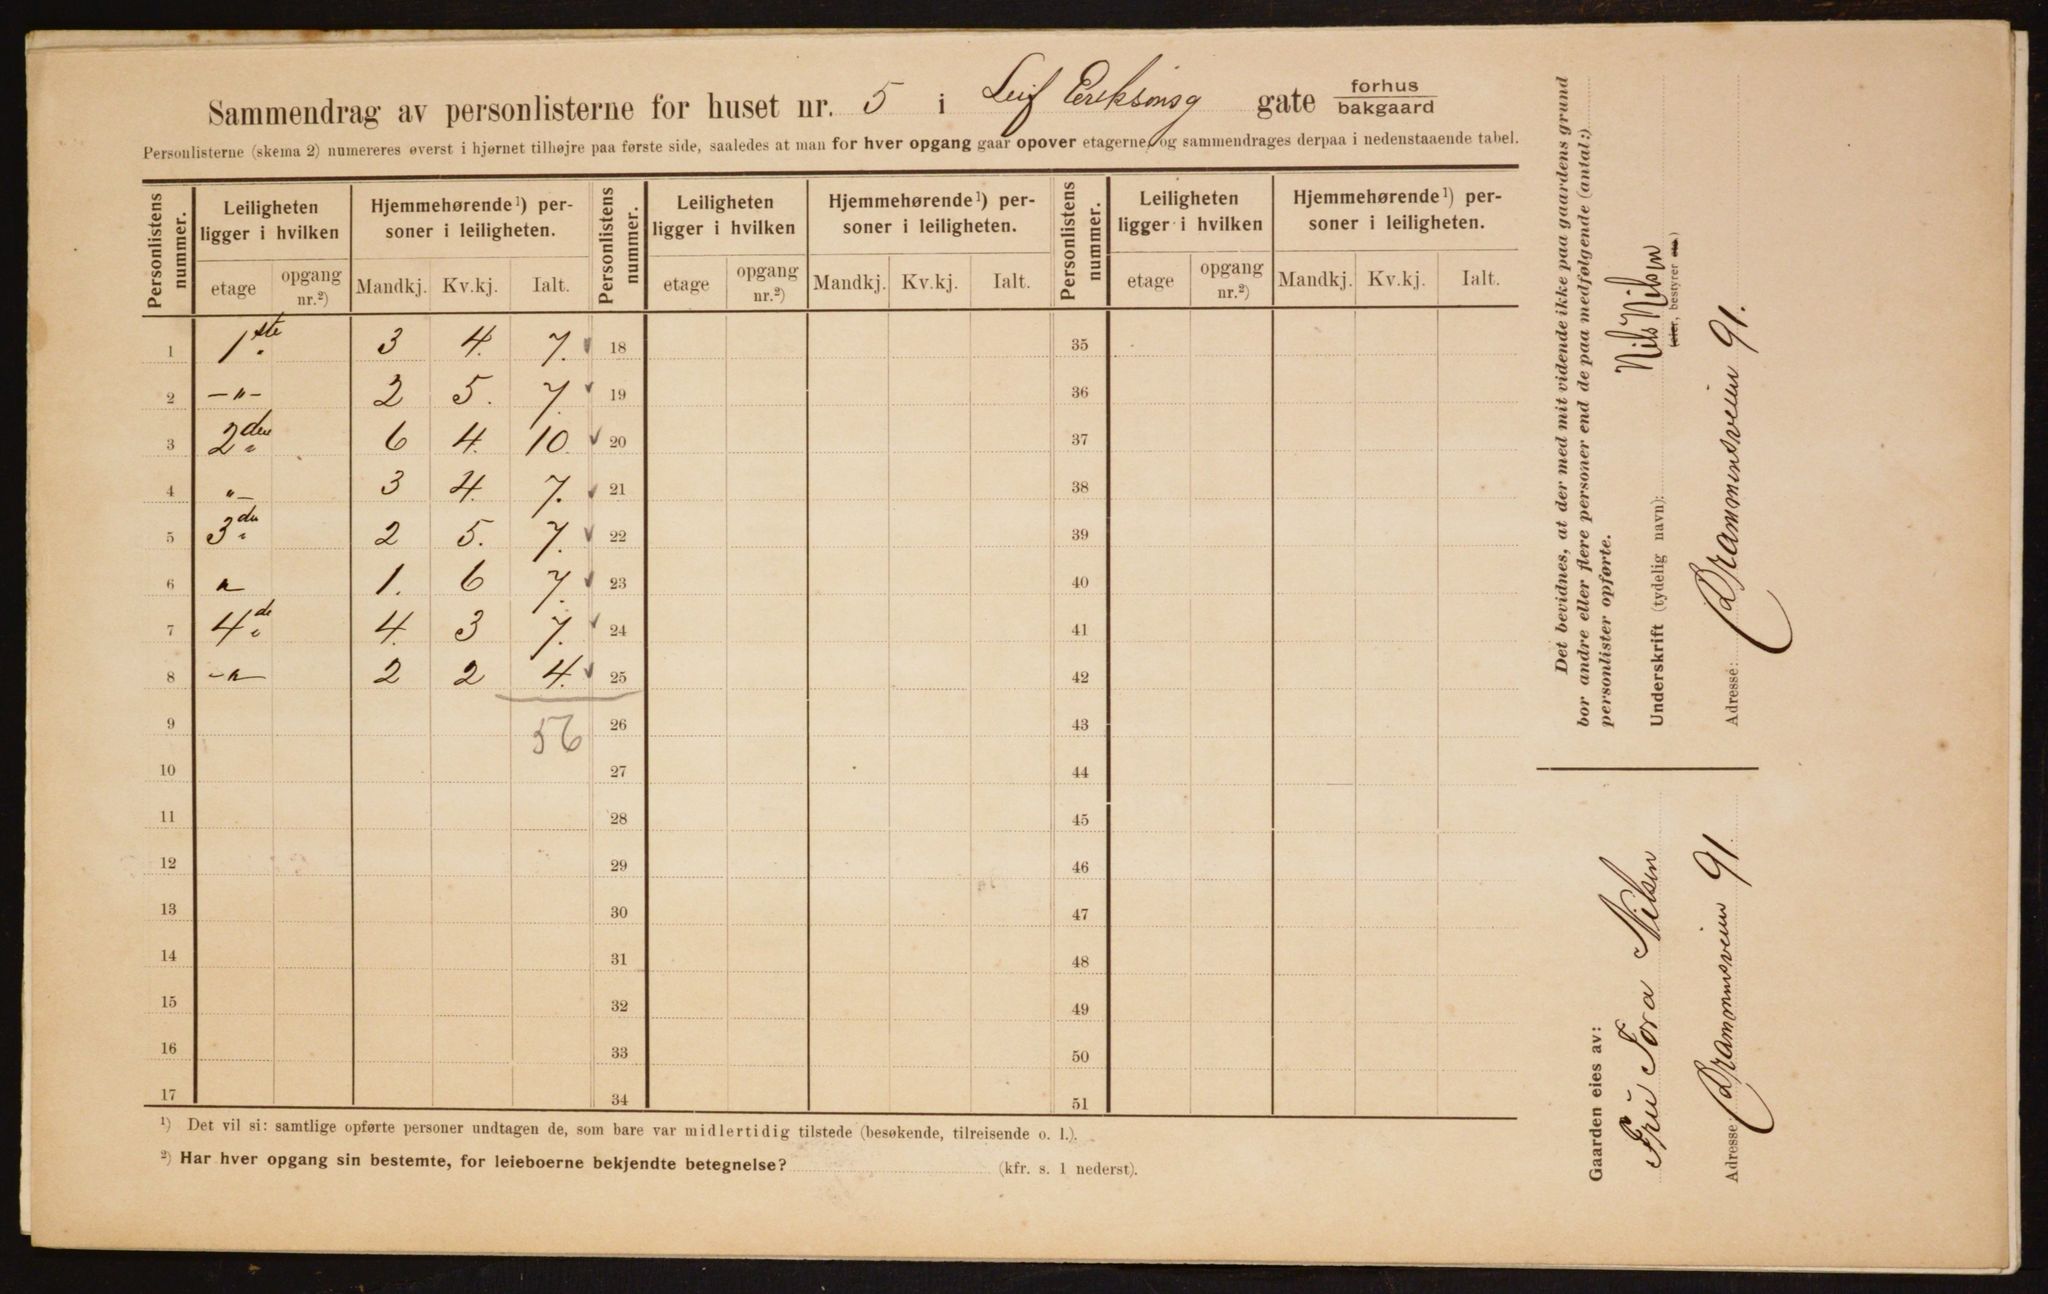 Sammendrag av personlisterne for huset nr. 5 i Leif Eriksönsg gate forhus / bakgaard
Personlisterne (skema 2) numereres øverst i hjørnet tilhøjre paa første side, saaledes at man for hver opgang gaar opover etagerne, og sammendrages derpaa i nedenstaaende tabel.
Personlistens nummer. Leiligheten ligger i hvilken Hjemmehørende ¹) personer i leiligheten. Personlistens nummer. Leiligheten ligger i hvilken Hjemmehørende ¹) personer i leiligheten. Personlistens nummer. Leiligheten ligger i hvilken Hjemmehørende ¹) personer i leiligheten.
etage opgang nr.²) Mandkj. Kv.kj. Ialt. etage opgang nr.²) Mandkj. Kv.kj. Ialt. etage opgang nr.²) Mandkj. Kv.kj. Ialt.
1 1ste 3 4. 7. 18 35
2 -"- 2 5. 7. 19 36
3 2den 6 4. 10. 20 37
4 "- 3 4. 7. 21 38
5 3de 2 5. 7. 22 39
6 " 1. 6 7. 23 40
7 4de 4. 3 7. 24 41
8 -"- 2 2 4. 25 42
9 56 26 43
10 27 44
11 28 45
12 29 46
13 30 47
14 31 48
15 32 49
16 33 50
17 34 51
¹) Det vil si: samtlige opførte personer undtagen de, som bare var midlertidig tilstede (besøkende, tilreisende o. l.).
²) Har hver opgang sin bestemte, for leieboerne bekjendte betegnelse? (kfr. s. 1 nederst).
Det bevidnes, at der med mit vidende ikke paa gaardens grund
bor andre eller flere personer end de paa medfølgende (antal:)
personlister opførte.
Underskrift (tydelig navn): Nils Nilsen
(eier, bestyrer etc.)
Adresse: Drammensveien 91.
Gaarden eies av:
Fru Tora Nilsen
Adresse: Drammensveien 91.